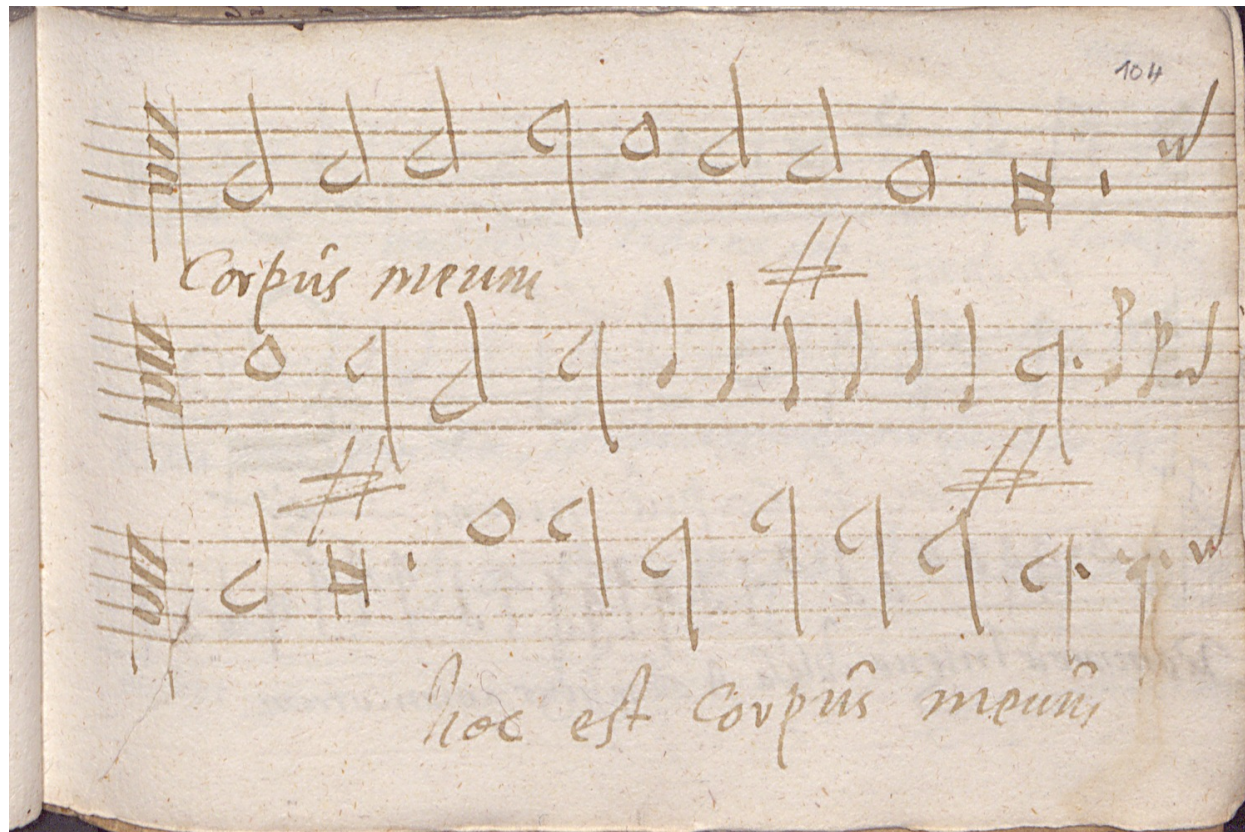 104
Corpus meum
hoc est Corpus meum